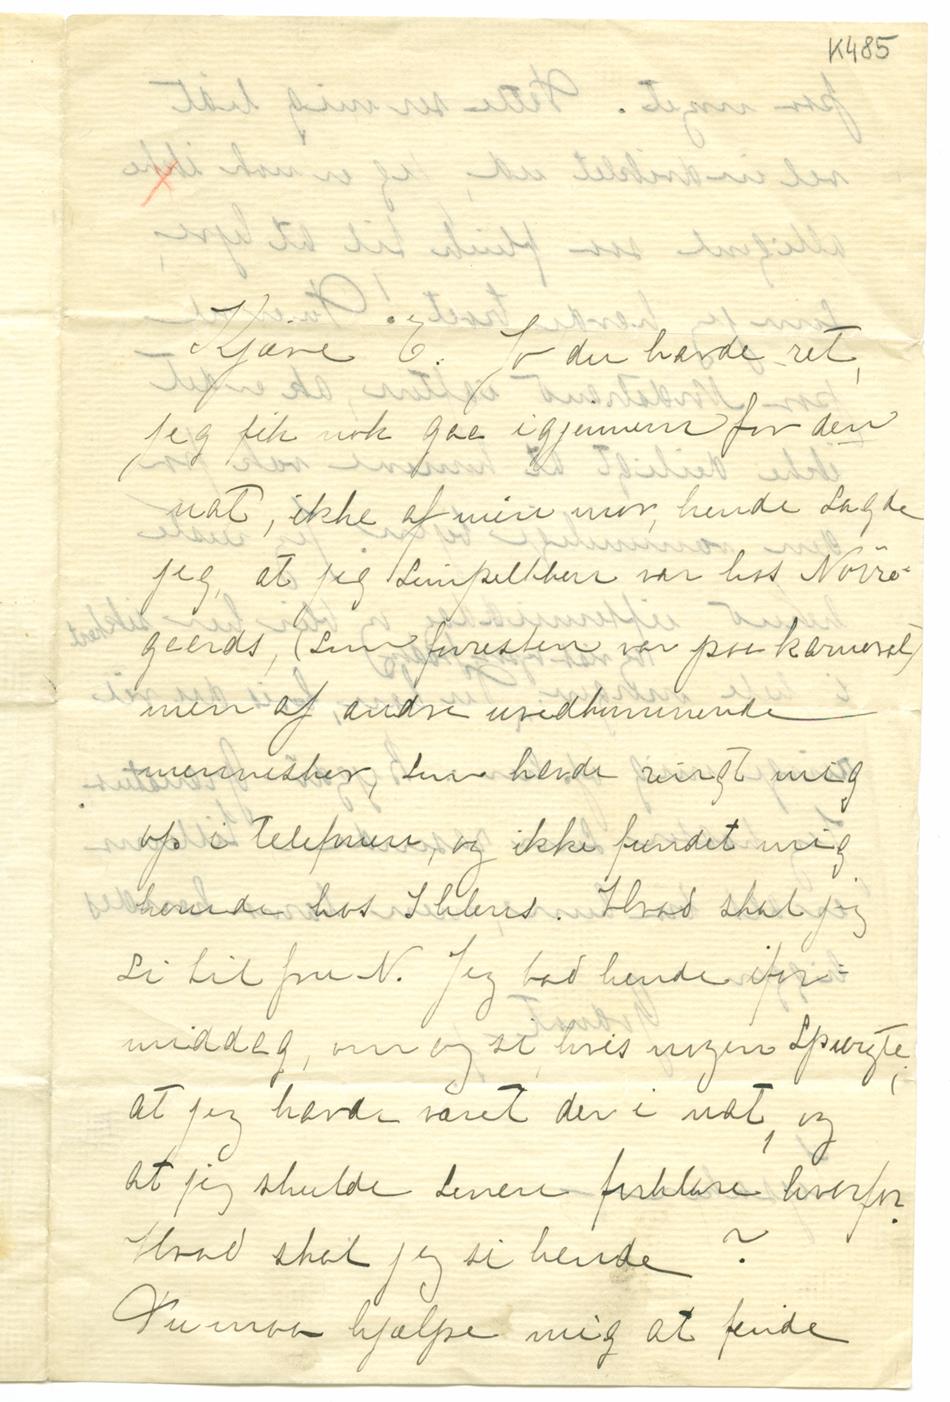 K485
Kjære E. Jo du havde ret,
jeg fik nok gaa igjennem for den
nat, ikke af min mor, hende sagde
jeg, at jeg simpelthen var hos Nörre-
gaards, (som foresten var paa karneval)
men af andre uvedkommende
mennesker, som havde ringt mig
op i telefonen, og ikke fundet mig
hverken hos Ihlens. Hvad skal jeg
si til fru N. Jeg bad hende ifor-
middag, om og si, hvis nogen spurgte,
at jeg havde været der i nat, og
at jeg skulde senere forklare hvorfor.
Hvad skal jeg si hende ?
Du maa hjælpe mig at finde